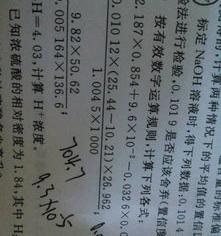 两种情况下的平均值的置信
标定 NaOH 溶液时,得下列数据:0.1014
法进行检验,0.1019 是否应该舍弃(置信度
按有效数字运算规则,计算下列各式:
2.187×0.854+9.6×10⁻²-0.0326×0.
0.01012×(25.44-10.21)×26.962
1.0045×1000
9.82×50.62
.005164×136.6
H=4.03,计算 H⁺浓度。
已知浓硫酸的相对密度为 1.84,其中 H
704.7
9.3×10-5